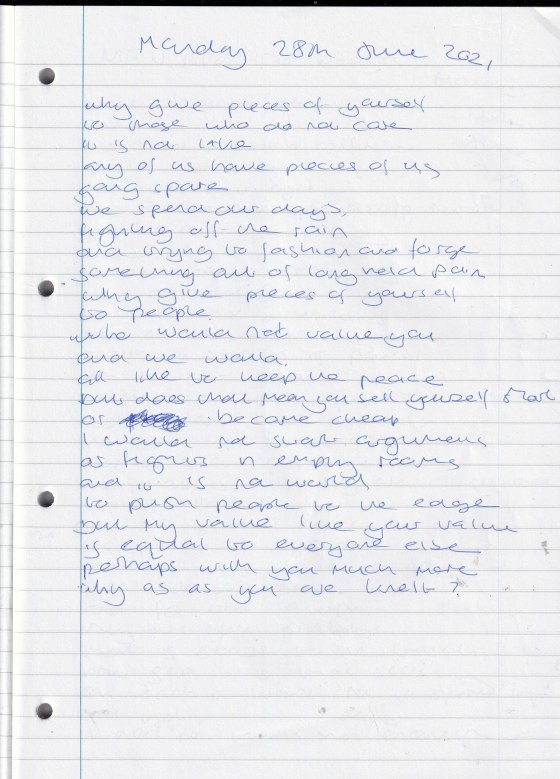 Monday 28th June 2021
why give pieces of yourself
to those who do not care
it is not like
any of us have pieces of us
going spare
we spend our days
fighting off the rain
and trying to fashion and forge
something out of long held pain
why give pieces of yourself
to people
who would not value you
and we would
all like to keep the peace
but does that mean you sell yourself short
or become cheap
I would not start arguments
or fights in empty rooms
and it is not
to push people to the edge
but my value like your value
is equal to everyone else
perhaps with you much more
why as as you are